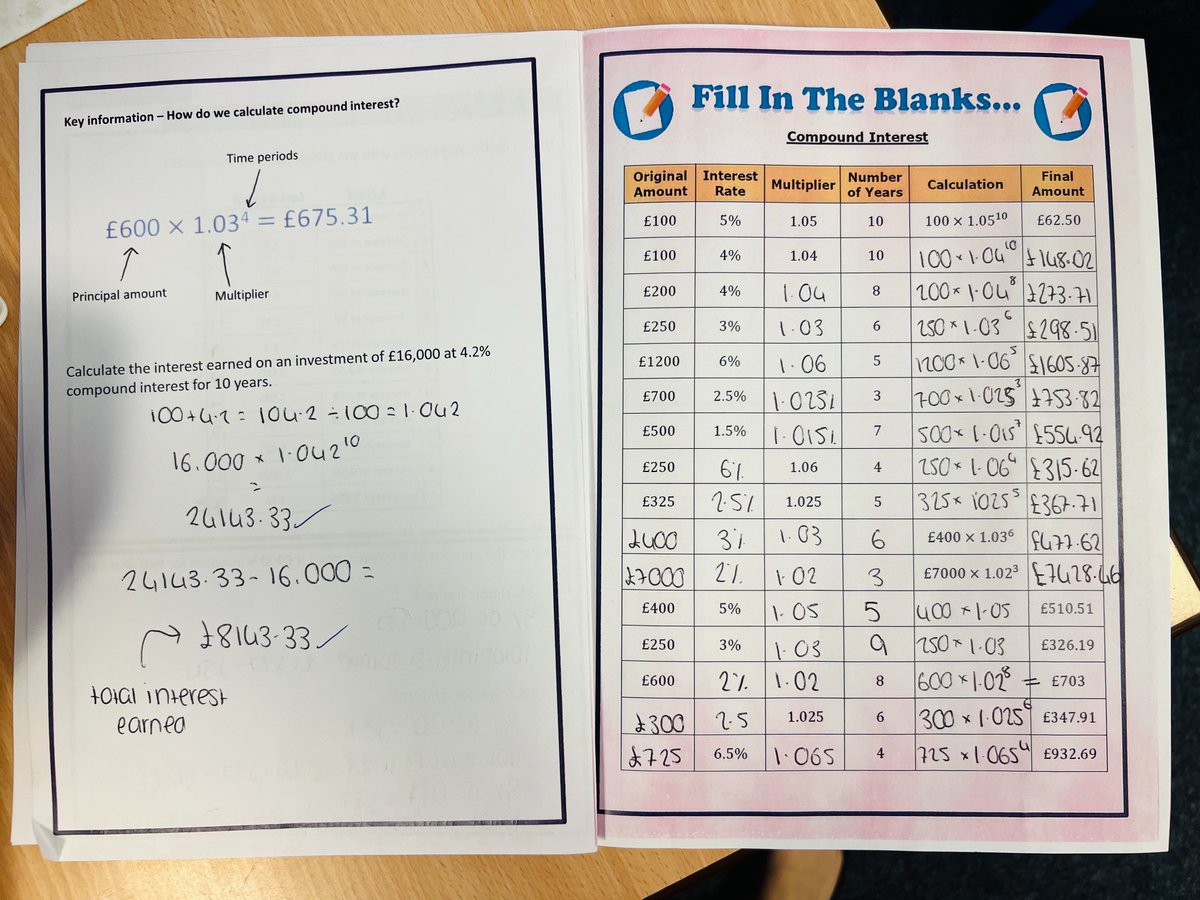 Key information – How do we calculate compound interest?
Time periods
£600 × 1.03⁴ = £675.31
Principal amount
Multiplier
Calculate the interest earned on an investment of £16,000 at 4.2%
compound interest for 10 years.
100+4.2 = 104.2 ÷100 = 1.042
16.000 × 1.042¹⁰
=
24143.33 ✓
24143.33 - 16.000 =
→ £8143.33 ✓
total interest
earned
Fill In The Blanks...
Compound Interest
Original Amount | Interest Rate | Multiplier | Number of Years | Calculation | Final Amount
£100 | 5% | 1.05 | 10 | 100 × 1.05¹⁰ | £62.50
£100 | 4% | 1.04 | 10 | 100 × 1.04¹⁰ | £148.02
£200 | 4% | 1.04 | 8 | 200 × 1.04⁸ | £273.71
£250 | 3% | 1.03 | 6 | 250 × 1.03⁶ | £298.51
£1200 | 6% | 1.06 | 5 | 1200 × 1.06⁵ | £1605.87
£700 | 2.5% | 1.025% | 3 | 700 × 1.025³ | £753.82
£500 | 1.5% | 1.015% | 7 | 500 × 1.015⁷ | £554.92
£250 | 6% | 1.06 | 4 | 250 × 1.06⁴ | £315.62
£325 | 2.5% | 1.025 | 5 | 325 × 1025⁵ | £367.71
£400 | 3% | 1.03 | 6 | £400 × 1.03⁶ | £477.62
£7000 | 2% | 1.02 | 3 | £7000 × 1.02³ | £7428.46
£400 | 5% | 1.05 | 5 | 400 × 1.05 | £510.51
£250 | 3% | 1.03 | 9 | 250 × 1.03 | £326.19
£600 | 2% | 1.02 | 8 | 600 × 1.02⁸ = | £703
£300 | 2.5 | 1.025 | 6 | 300 × 1.025⁶ | £347.91
£725 | 6.5% | 1.065 | 4 | 725 × 1.065⁴ | £932.69